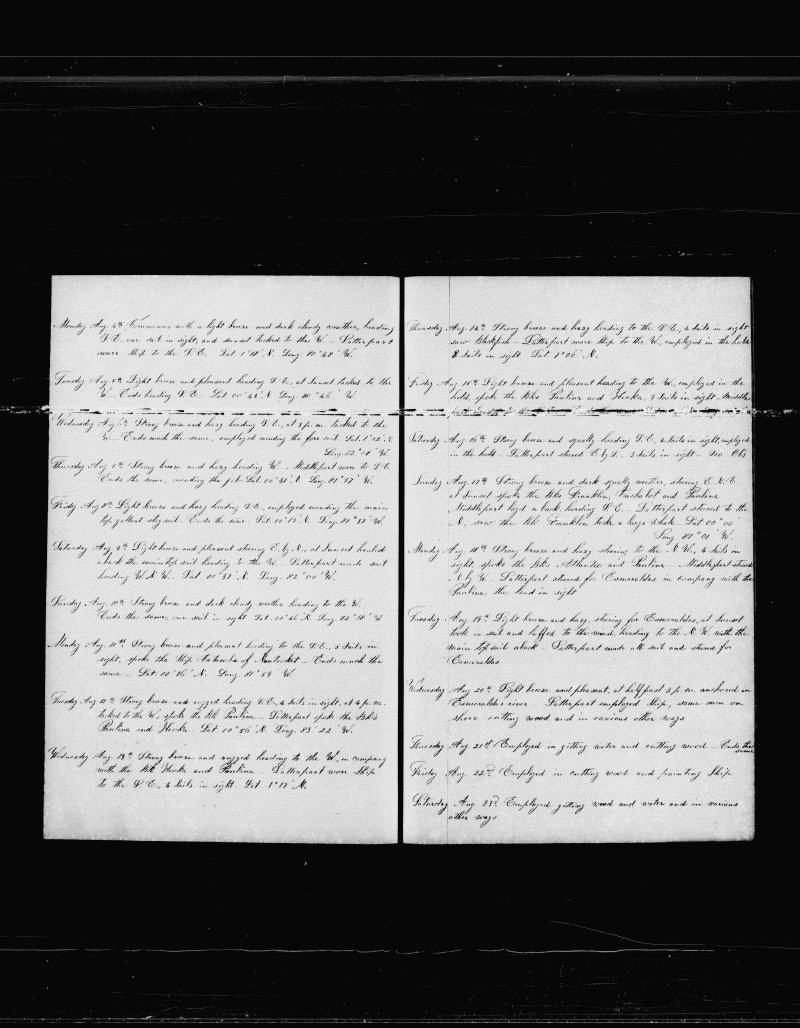 Monday Aug. 4th Commences with a light breeze and dark cloudy weather, heading
S.E. one sail in sight, and sunset tacked to the W. - Latterpart
wore ship to the S.E. Lat. 1°11' N. Long. 80°48' W.
Tuesday Aug 5th Light breeze and pleasant heading S.E., at Sunset tacked to the
W. - Ends heading S.E. - Lat 00°48' N Long. 80°46' W.
Wednesday Aug 6th Strong breeze and hazy heading S.E., at 3 p.m. tacked to the
W. - Ends much the same, employed mending the fore sail.
Long. 82°08' W.
Thursday Aug. 7th Strong breeze and hazy heading W. - Middlepart wore to S.E.
Ends the same, mending the jib. Long. 81°57' W.
Friday Aug 8th Light breeze and hazy heading S.E., employed mending the main
top gallant stay sail. Ends the same. Long. 81°57' W.
Saturday Aug. 9th Light breeze and pleasant steering E. by N., at Sunset hauled
aback the main top sail heading to the W. Latterpart made sail
heading W.N.W. Lat. 00°57' N. Long. 82°00' W.
Sunday Aug. 10th Strong breeze and dark cloudy weather heading to the W.
Ends the same, one sail in sight. Lat. 00°46' N. Long. 82°18' W
Monday Aug. 11th Strong breeze and pleasant heading to the S.E., 3 Sails in
sight, spoke the Ship of Nantucket - Ends much the
same - Lat. 00°56' N. Long. 81°59' W.
Tuesday Aug 12th Strong breeze and rugged heading S.E. 4 Sails in sight, at 4 p.m.
tacked to the W., spoke the Bk Paulina - Latterpart spoke the Bks
Paulina and Hecla. Lat. 00°56' N. Long. 83°22' W.
Wednesday Aug 13th Strong breeze and rugged heading to the W. in company
with the Bk Hecla and Paulina - Latterpart wore Ship
to the S.E., 5 Sails in sight. Lat. 1°17' N.
Thursday Aug. 14th Strong breeze and hazy heading to the S.E., 4 Sails in sight
saw Blackfish - Latterpart wore Ship to the W., employed in the hold
8 Sails in sight Lat 1°06' N.
Friday Aug 15th Light breeze and pleasant heading to the W, employed in the
hold, spoke the Bks Paulina and Hecla, 4 Sails in sight - Middle
Saturday Aug 16th Strong breeze and squally heading S.E. 4 Sails in sight, employed
in the hold - Latterpart steered E by S. 3 Sails in sight - no Obs
Sunday Aug. 17th Strong breeze and dark squally weather, steering E.N.E.
at Sunset spoke the Bks Franklin, and Paulina
Middlepart laid aback, heading S.E. - Latterpart steered to the
N., saw the Bk Franklin take a large whale Lat 00°00'
Long. 81°01' W.
Monday Aug 18th Strong breeze and hazy steering to the N.W., 4 Sails in
sight, spoke the Bks Atlantic and Paulina - Middlepart steered
N. by W. - Latterpart steered for Esmeraldas in company with the
Paulina, the land in sight
Tuesday Aug 19th Light breeze and hazy, steering for Esmeraldas, at Sunset
took in sail and luffed to the wind heading to the N.W. with the
main top sail aback - Latterpart made all sail and steered for
Esmeraldas
Wednesday Aug 20th Light breeze and pleasant, at half past 3 p.m. anchored in
Esmeraldas river - Latterpart employed Ship, some men on
shore cutting wood and in various other ways
Thursday Aug 21st Employed in gitting water and cutting wood - Ends the
same
Friday Aug. 22d Employed in cutting wood and painting Ship
Saturday Aug. 23d Employed gitting wood and water and in various
other ways